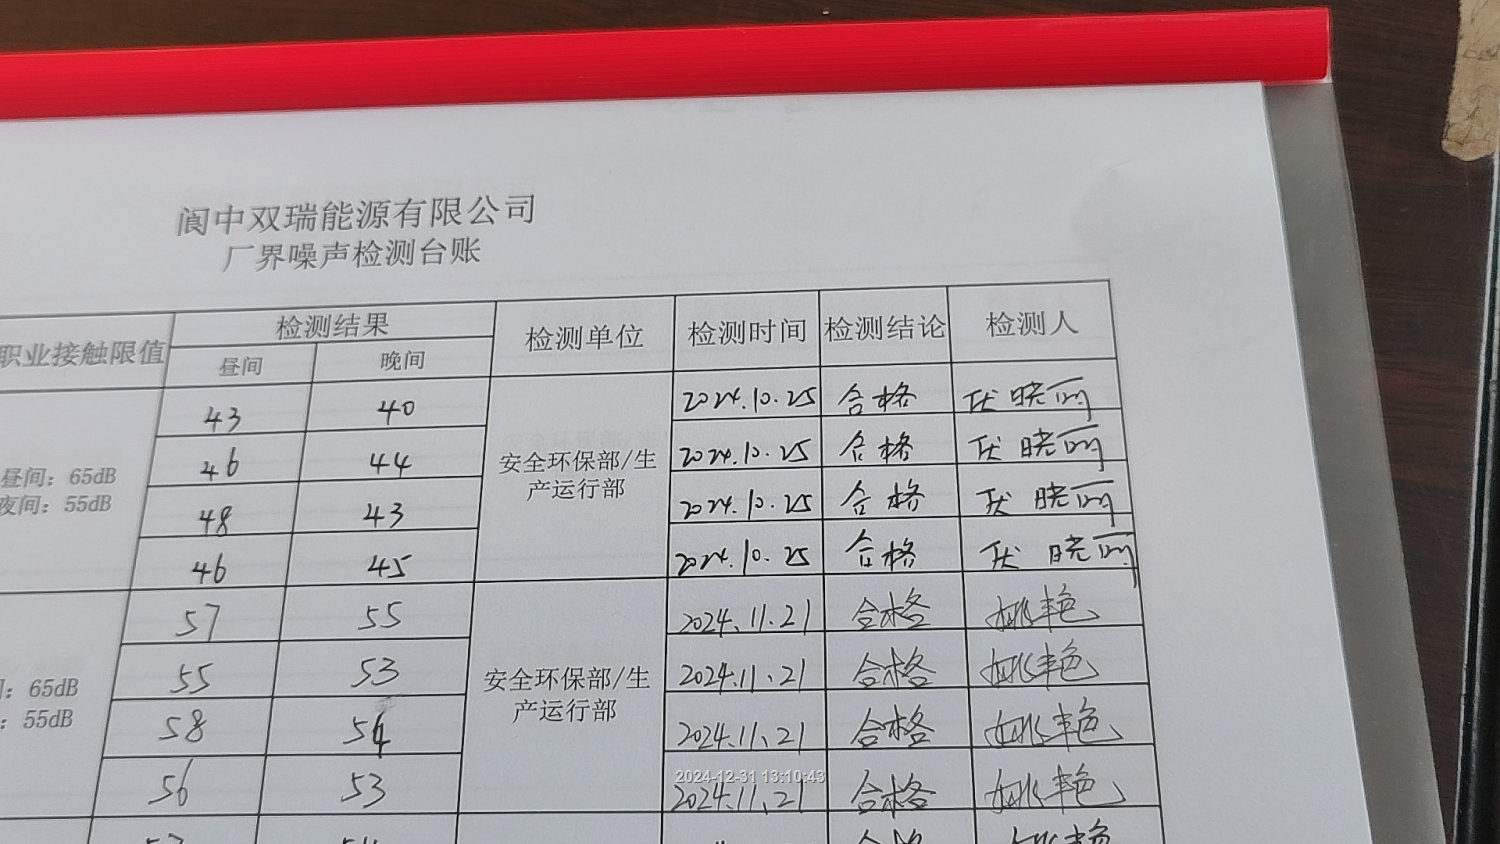 阆中双瑞能源有限公司
厂界噪声检测台账
职业接触限值 检测结果 检测单位 检测时间 检测结论 检测人
昼间 晚间
43 40 2024.10.25 合格 伏晓丽
昼间：65dB 46 44 安全环保部/生 2024.10.25 合格 伏晓丽
夜间：55dB 48 43 产运行部 2024.10.25 合格 伏晓丽
46 45 2024.10.25 合格 伏晓丽
57 55 2024.11.21 合格 姚艳
：65dB 55 53 安全环保部/生 2024.11.21 合格 姚艳
：55dB 58 54 产运行部 2024.11.21 合格 姚艳
2024-12-31 13:10:43
56 53 2024.11.21 合格 姚艳